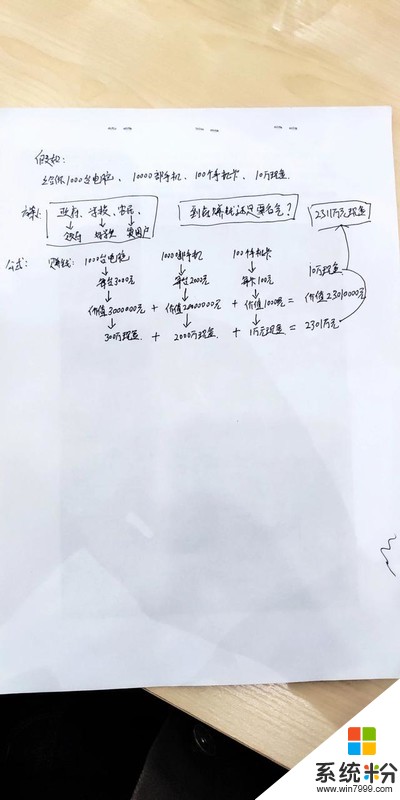 假如:
给你1000台电脑、10000部手机、100个手机卡、10万现金.
方案: 政府、学校、客户、 到底赚钱还是要名气? 2311万元现金
政府 好学生 用户
公式: 赚钱: 1000台电脑 10000部手机 100个手机卡 10万现金
每台3000元 每台2000元 每卡100元
价值3000000元 + 价值20000000元 + 价值10000元 = 价值23010000元
300万现金 + 2000万现金 + 1万元现金 = 2301万元
系统粉
www.win7999.com